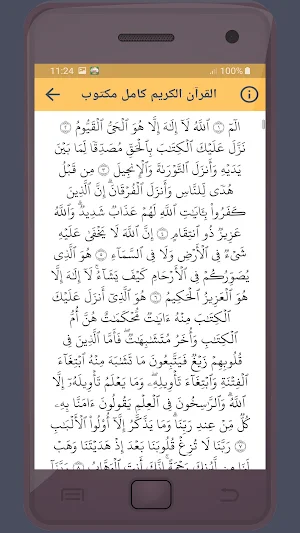 11:24 100%
القرآن الكريم كامل مكتوب
الٓمٓ ۝١ ٱللَّهُ لَآ إِلَٰهَ إِلَّا هُوَ ٱلْحَىُّ ٱلْقَيُّومُ ۝٢
نَزَّلَ عَلَيْكَ ٱلْكِتَٰبَ بِٱلْحَقِّ مُصَدِّقًا لِّمَا بَيْنَ
يَدَيْهِ وَأَنزَلَ ٱلتَّوْرَىٰةَ وَٱلْإِنجِيلَ ۝٣ مِن قَبْلُ
هُدًى لِّلنَّاسِ وَأَنزَلَ ٱلْفُرْقَانَ ۗ إِنَّ ٱلَّذِينَ
كَفَرُوا۟ بِـَٔايَٰتِ ٱللَّهِ لَهُمْ عَذَابٌ شَدِيدٌ ۗ وَٱللَّهُ
عَزِيزٌ ذُو ٱنتِقَامٍ ۝٤ إِنَّ ٱللَّهَ لَا يَخْفَىٰ عَلَيْهِ
شَىْءٌ فِى ٱلْأَرْضِ وَلَا فِى ٱلسَّمَآءِ ۝٥ هُوَ ٱلَّذِى
يُصَوِّرُكُمْ فِى ٱلْأَرْحَامِ كَيْفَ يَشَآءُ ۚ لَآ إِلَٰهَ إِلَّا
هُوَ ٱلْعَزِيزُ ٱلْحَكِيمُ ۝٦ هُوَ ٱلَّذِىٓ أَنزَلَ عَلَيْكَ
ٱلْكِتَٰبَ مِنْهُ ءَايَٰتٌ مُّحْكَمَٰتٌ هُنَّ أُمُّ
ٱلْكِتَٰبِ وَأُخَرُ مُتَشَٰبِهَٰتٌ ۖ فَأَمَّا ٱلَّذِينَ فِى
قُلُوبِهِمْ زَيْغٌ فَيَتَّبِعُونَ مَا تَشَٰبَهَ مِنْهُ ٱبْتِغَآءَ
ٱلْفِتْنَةِ وَٱبْتِغَآءَ تَأْوِيلِهِۦ ۗ وَمَا يَعْلَمُ تَأْوِيلَهُۥٓ إِلَّا
ٱللَّهُ ۗ وَٱلرَّٰسِخُونَ فِى ٱلْعِلْمِ يَقُولُونَ ءَامَنَّا بِهِۦ
كُلٌّ مِّنْ عِندِ رَبِّنَا ۗ وَمَا يَذَّكَّرُ إِلَّآ أُو۟لُوا۟ ٱلْأَلْبَٰبِ
۝٧ رَبَّنَا لَا تُزِغْ قُلُوبَنَا بَعْدَ إِذْ هَدَيْتَنَا وَهَبْ
لَنَا مِن لَّدُنكَ رَحْمَةً ۚ إِنَّكَ أَنتَ ٱلْوَهَّابُ ۝٨ رَبَّنَآ